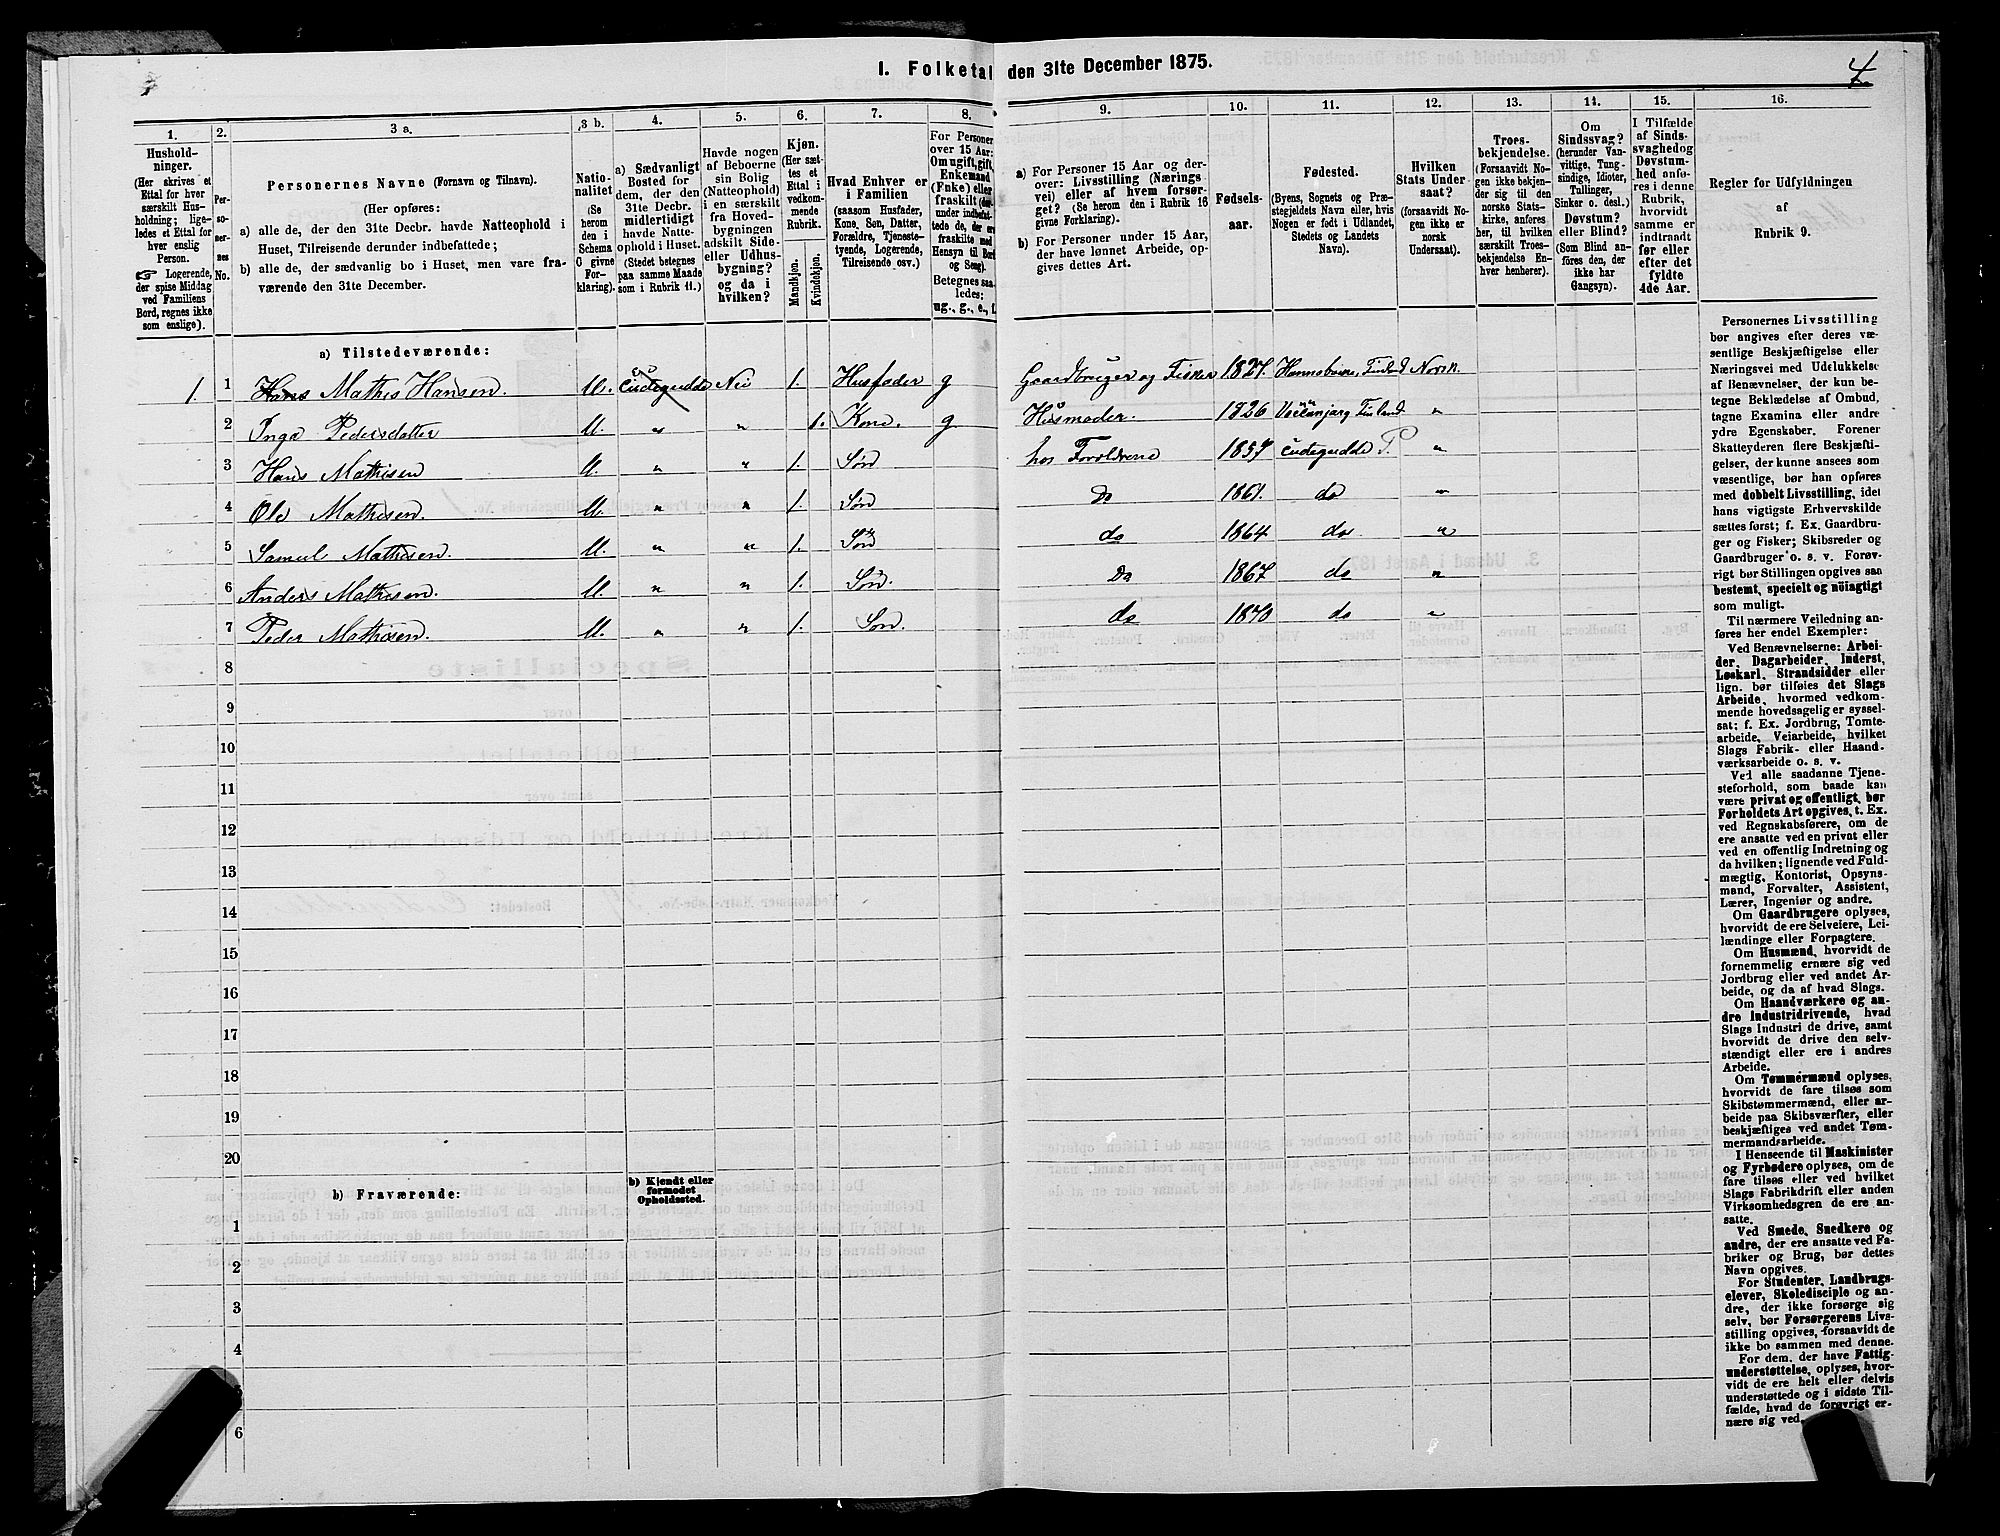 I. Folketal den 31te December 1875.
4
1.
Husholdninger.
(Her skrives et
Ettal for hver
særskilt Husholdning; ligeledes et Ettal for
hver enslig
Person.
☞ Logerende,
der spise Middag
ved Familiens
Bord, regnes ikke
som enslige).
2.
Personernes
No.
3 a.
Personernes Navne (Fornavn og Tilnavn).
(Her opføres:
a) alle de, der den 31te Decbr. havde Natteophold i
Huset, Tilreisende derunder indbefattede;
b) alle de, der sædvanlig bo i Huset, men vare fraværende den 31te December.
3 b.
Nationalitet
(Se
herom
den i
Schema
C givne
Forklaring).
4.
a) Sædvanligt
Bosted for
dem, der den
31te Decbr.
midlertidigt
havde Natteophold i Huset.
(Stedet betegnes
paa samme Maade
som i Rubrik 11.)
5.
Havde nogen
af Beboerne
sin Bolig
(Natteophold)
i en særskilt
fra Hovedbygningen
adskilt Side-
eller Udhusbygning?
og da i
hvilken?
6.
Kjøn.
(Her sættes et
Ettal i
vedkommende
Rubrik.
Mandkjøn.
Kvindekjøn.
7.
Hvad Enhver er
i Familien
(saasom Husfader,
Kone, Søn, Datter,
Forældre, Tjenestetyende, Logerende,
Tilreisende osv.)
8.
For Personer
over 15 Aar:
Om ugift, gift,
Enkemand
(Enke) eller
fraskilt
Betegnes saaledes:
ug., g., e., f.
9.
a) For Personer 15 Aar og derover: Livsstilling (Næringsvei) eller af hvem forsørget? (Se herom den i Rubrik 16
givne Forklaring).
b) For Personer under 15 Aar,
der have lønnet Arbeide, opgives dettes Art.
10.
Fødselsaar.
11.
Fødested.
(Byens, Sognets og Præstegjeldets Navn eller, hvis
Nogen er født i Udlandet,
Stedets og Landets
Navn).
12.
Hvilken
Stats Undersaat?
(forsaavidt Nogen ikke er
norsk
Undersaat).
13.
Troesbekjendelse.
(Forsaavidt Nogen ikke bekjender sig til den
norske Statskirke, anføres
her, til hvilken
særskilt Troesbekjendelse Enhver henhører).
14.
Om
Sindssvag?
(herunder Vanvittige, Tungsindige, Idioter,
Tullinger,
Sinker o. desl.)
Døvstum?
eller Blind?
(Som Blind anføres den, der
ikke har
Gangsyn).
15.
I Tilfælde
af Sindssvaghed og
Døvstumhed anføres i denne
Rubrik,
hvorvidt
samme er
indtraadt
før eller
efter det
fyldte
4de Aar.
16.
Regler for Udfyldningen
af
Rubrik 9.
a) Tilstedeværende:
1 1 Hans Mathis Hansen. Nei 1. Husfader g Gaardbruger og Fisker 1827. Norsk.
2 Inga Pedersdatter " " 1. Kone. g Husmoder. 1826 "
3 Hans Mathisen " " 1. Søn hos Forældrene 1857 "
4 Ole Mathisen. " " 1. Søn Do 1861. do "
5 Samuel Mathisen. " " 1. Søn do 1864 do "
6 Anders Mathisen. " " 1. Søn. Do 1867 do "
7 Peder Mathisen. " " 1. Søn. do 1870 do "
8
9
10
11
12
13
14
15
16
17
18
19
20
b) Fraværende:
b) Kjendt eller
formodet
Opholdssted.
1
2
3
4
6
Personernes Livsstilling
bør angives efter deres væsentlige Beskjæftigelse eller
Næringsvei med Udelukkelse
af Benævnelser, der kun betegne Beklædelse af Ombud,
tagne Examina eller andre
ydre Egenskaber. Forener
Skatteyderen flere Beskjæftigelser, der kunne ansees som
væsentlige, bør han opføres
med dobbelt Livsstilling, idet
hans vigtigste Erhvervskilde
sættes først; f. Ex. Gaardbruger og Fisker; Skibsreder og
Gaardbruger o. s. v. Forøvrigt bør Stillingen opgives saa
bestemt, specielt og nöiagtigt
som muligt.
Til nærmere Veiledning anføres her endel Exempler:
Ved Benævnelserne: Arbeider, Dagarbeider, Inderst,
Løskarl, Strandsidder eller
lign. bør tilføies det Slags
Arbeide, hvormed vedkommende hovedsagelig er sysselsat; f. Ex. Jordbrug, Tomtearbeide, Veiarbeide, hvilket
Slags Fabrik- eller Haandværksarbeide o. s. v.
Ved alle saadanne Tjenesteforhold, som baade kan
være privat og offentligt, bør
Forholdets Art opgives, t. Ex.
ved Regnskabsførere, om de
ere ansatte ved en privat eller
ved en offentlig Indretning og
da hvilken; lignende ved Fuldmægtig, Kontorist, Opsynsmand, Forvalter, Assistent,
Lærer, Ingeniør og andre.
Om Gaardbrugere oplyses,
hvorvidt de ere Selveiere, Leilændinge eller Forpagtere.
Om Husmænd, hvorvidt de
fornemmelig ernære sig ved
Jordbrug eller ved andet Arbeide, og da af hvad Slags.
Om Haandværkere og andre Industridrivende, hvad
Slags Industri de drive, samt
hvorvidt de drive den selvstændigt eller ere i andres
Arbeide.
Om Tømmermænd oplyses,
hvorvidt de fare tilsøs som
Skibstømmermænd, eller arbeide paa Skibsværfter, eller
beskjæftiges ved andet Tømmermandsarbeide.
I Henseende til Maskinister
og Fyrbødere oplyses, om de
fare tilsøs eller ved hvilket
Slags Fabrikdrift eller anden
Virksomhedsgren de ere ansatte.
Ved Smede, Snedkere og
andre, der ere ansatte ved Fabriker og Brug, bør dettes
Navn opgives.
For Studenter, Landbrugselever, Skoledisciple og andre, der ikke forsørge sig
selv, bør Forsørgerens Livsstilling opgives, forsaavidt de
ikke bo sammen med denne.
For dem, der have Fattigunderstøttelse, oplyses, hvorvidt de ere helt eller delvis
understøttede og i sidste Tilfælde, hvad de forøvrigt ernære sig ved.